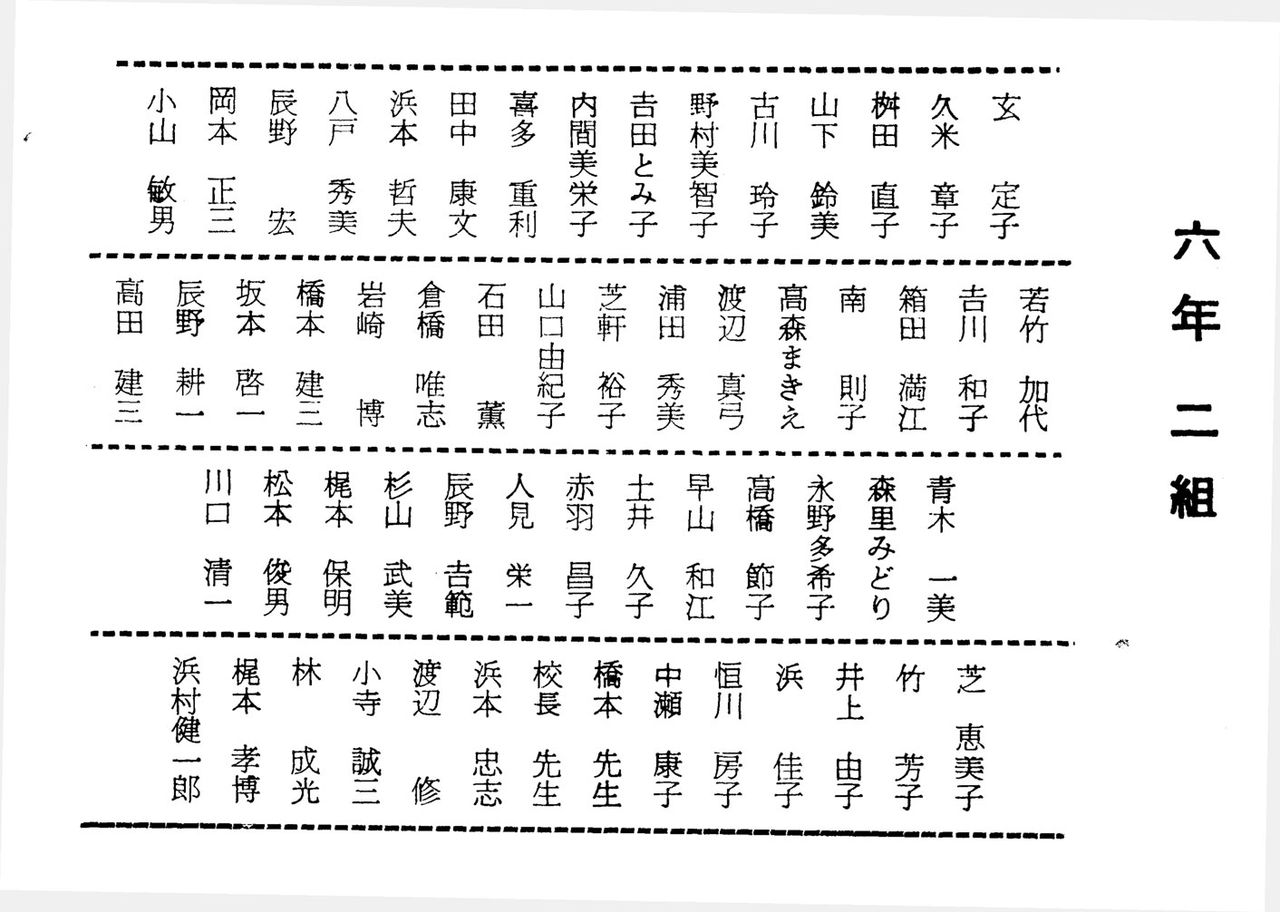 六年二組
玄 定子
久米 章子
桝田 直子
山下 鈴美
古川 玲子
野村美智子
吉田とみ子
内間美栄子
喜多 重利
田中 康文
浜本 哲夫
八戸 秀美
辰野 宏
岡本 正三
小山 敏男
若竹 加代
吉川 和子
箱田 満江
南 則子
高森まきえ
渡辺 真弓
浦田 秀美
芝軒 裕子
山口由紀子
石田 薫
倉橋 唯志
岩崎 博
橋本 建三
坂本 啓一
辰野 耕一
高田 建三
青木 一美
森里みどり
永野多希子
高橋 節子
早山 和江
土井 久子
赤羽 昌子
人見 栄一
辰野 吉範
杉山 武美
梶本 保明
松本 俊男
川口 清一
芝 恵美子
竹 芳子
井上 由子
浜 佳子
恒川 房子
中瀬 康子
橋本 先生
校長 先生
浜本 忠志
渡辺 修
小寺 誠三
林 成光
梶本 孝博
浜村健一郎